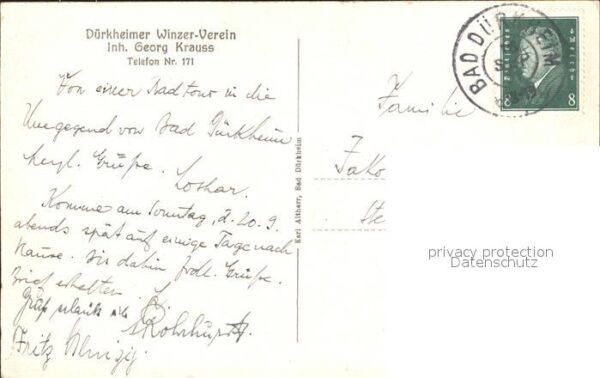 Dürkheimer Winzer-Verein
Inh. Georg Krauss
Telefon Nr. 171
Von einer Radtour in die
Umgegend von Bad Dürkheim
herzl. Grüße.
Lothar.
Komme am Sonntag, d. 20. 9.
abends spät auf einige Tage nach
Hause. Bis dahin frdl. Grüße.
Brief erhalten.
Fritz
Karl Altherr, Bad Dürkheim
BAD DÜRKHEIM
Deutsches Reich
8 8
Familie
Jako
Ste
privacy protection
Datenschutz